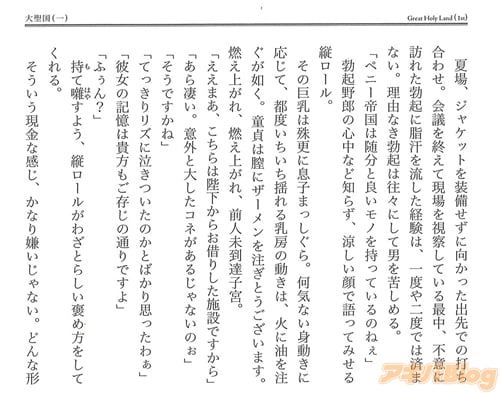 大聖国（一）
Great Holy Land (1st)
夏場、ジャケットを装備せずに向かった出先での打ち
合わせ。会議を終えて現場を視察している最中、不意に
訪れた勃起に脂汗を流した経験は、一度や二度では済ま
ない。理由なき勃起は往々にして男を苦しめる。
「ペニー帝国は随分と良いモノを持っているのねぇ」
勃起野郎の心中など知らず、涼しい顔で語ってみせる
縦ロール。
その巨乳は殊更に息子まっしぐら。何気ない身動きに
応じて、都度いちいち揺れる乳房の動きは、火に油を注
ぐが如く。童貞は膣にザーメンを注ぎとうございます。
燃え上がれ、燃え上がれ、前人未到達子宮。
「ええまあ、こちらは陛下からお借りした施設ですから」
「あら凄い。意外と大したコネがあるじゃないのぉ」
「そうですかね」
「てっきりリズに泣きついたのかとばかり思ったわぁ」
「彼女の記憶は貴方もご存じの通りですよ」
「ふぅん？」
持て囃すよう、縦ロールがわざとらしい褒め方をして
も はや
くれる。
そういう現金な感じ、かなり嫌いじゃない。どんな形
アキバBlog